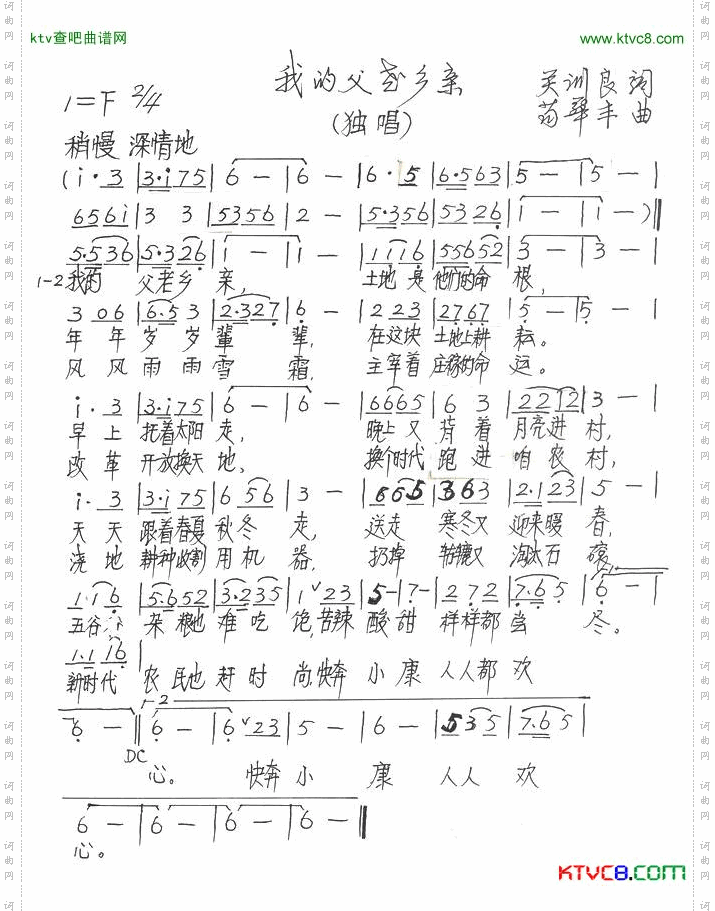 ktv查吧曲谱网 www.ktvc8.com
我的父老乡亲 关训良 词
1=F 2/4 (独唱) 曲
稍慢 深情地
(i·3 | 3·i75 | 6 — | 6 — | 6·5 | 6·563 | 5 — | 5 — |
656i | 3 3 | 5356 | 2 — | 5·356 | 5326 | 1 — | 1 — )‖
5·536 | 5·326 | 1 — | 1 — | 1116 | 55652 | 3 — | 3 — |
1-2我的 父老乡 亲, 土地 是 他们的命 根,
3 06 | 6·53 | 2·327 | 6 — | 2 23 | 2767 | 5 — | 5 — |
年 年 岁 岁 辈 辈, 在这块 土地上耕 耘。
风 风 雨 雨 雪 霜, 主宰着 庄稼的命 运。
i·3 | 3·i75 | 6 — | 6 — | 6665 | 6 3 | 2212 | 3 — |
早 上 托着太阳 走, 晚上 又 背 着 月亮进 村,
改 革 开放换天 地。 换个时代 跑 进 咱 农 村,
i·3 | 3·i75 | 6 56 | 3 — | 665 | 363 | 2·123 | 5 — |
天 天 跟着春夏 秋冬 走, 送走 寒冬又 迎来暖 春,
浇 地 耕种收割 用 机 器, 扔掉 辘轳又 淘汰石 磙
1·16 | 5·652 | 3·235 | 1 ˅23 | 5 — | 7 — | 2 72 | 7·65 | 6 — |
五谷 杂 粮也 难 吃 饱,苦辣 酸 甜 样样都 尝 尽。
1·1 16 |
新时代 农 民也 赶 时 尚,快奔 小 康 人人都 欢
1-2
6 — ‖ 6 — | 6 ˅23 | 5 — | 6 — | 535 | 7·65 |
DC
心。 快奔 小 康 人人 欢
6 — | 6 — | 6 — | 6 — ‖
心。
KTVC8.COM